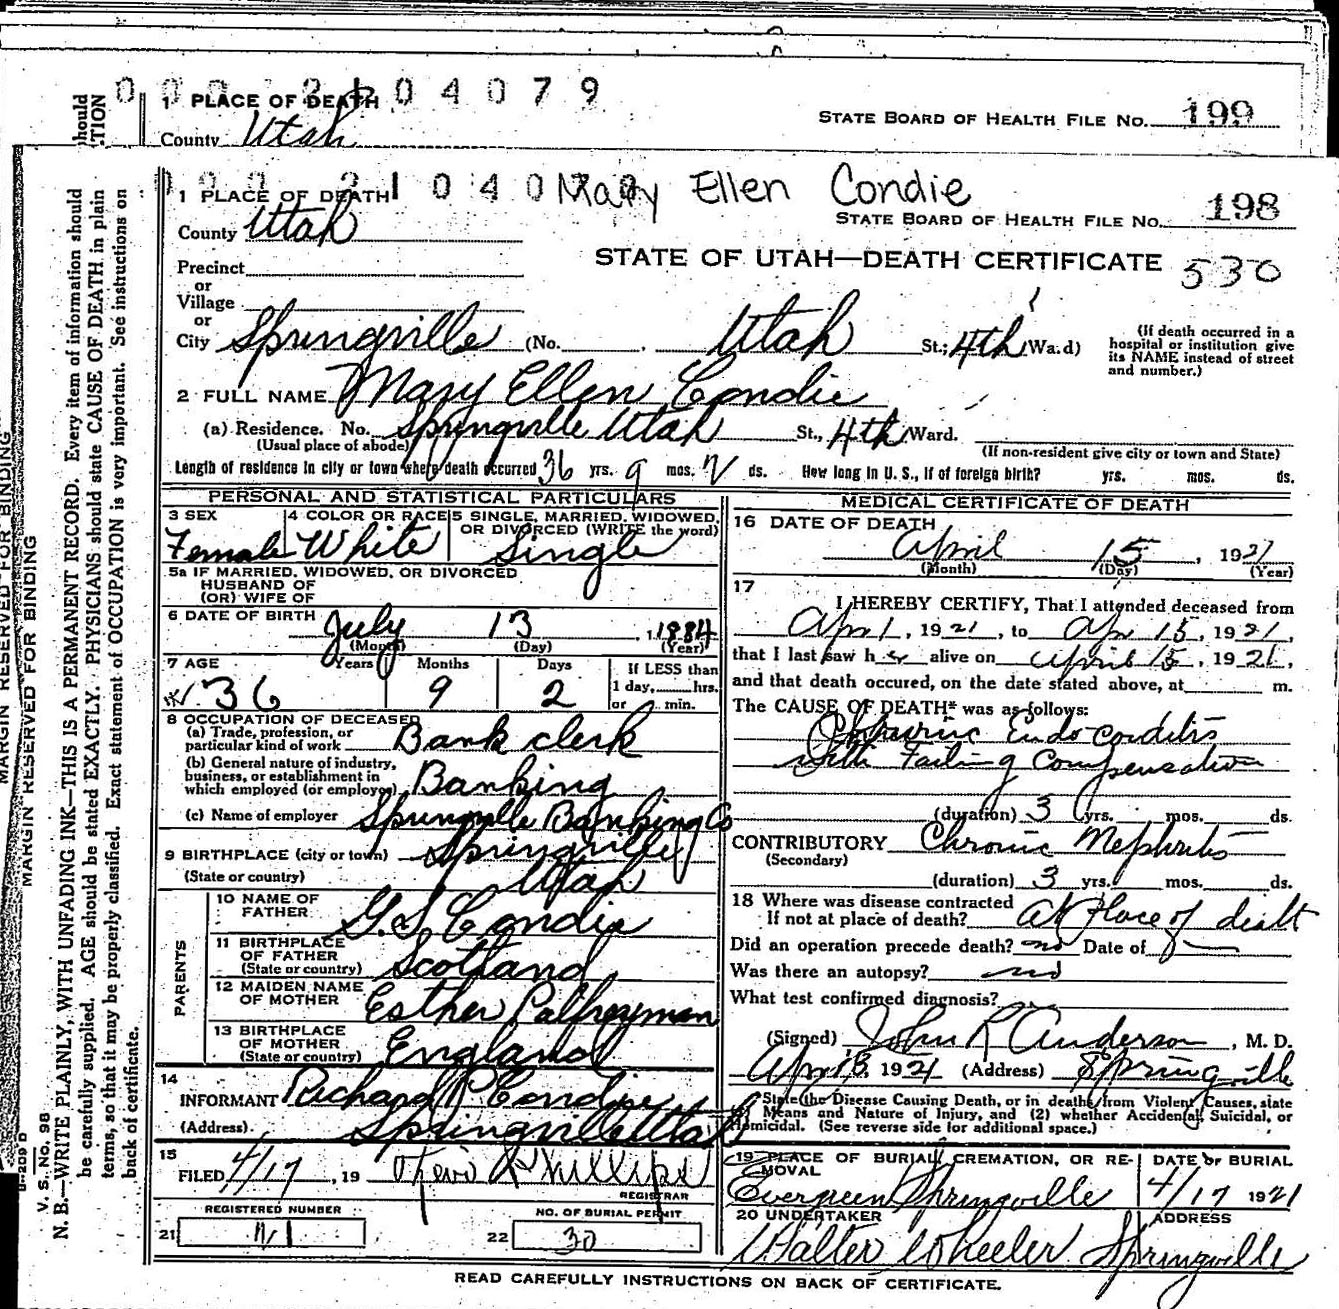 hould
ITION
0 0 0 2 1 0 4 0 7 9
1 PLACE OF DEATH
County Utah
STATE BOARD OF HEALTH FILE NO. 199
MARGIN RESERVED FOR BINDING
MARGIN RESERVED FOR BINDING
V. S. NO. 98
N. B.—WRITE PLAINLY, WITH UNFADING INK—THIS IS A PERMANENT RECORD. Every item of information should
be carefully supplied. AGE should be stated EXACTLY. PHYSICIANS should state CAUSE OF DEATH in plain
terms, so that it may be properly classified. Exact statement of OCCUPATION is very important. See instructions on
back of certificate.
1 PLACE OF DEATH
Mary Ellen Condie
STATE BOARD OF HEALTH FILE NO. 198
County Utah
STATE OF UTAH—DEATH CERTIFICATE 530
Precinct
or
Village
or
City Springville (No. Utah St; 4th Wa.d)
(If death occurred in a
hospital or institution give
its NAME instead of street
and number.)
2 FULL NAME Mary Ellen Condie
(a) Residence. No. Springville Utah St., 4th Ward.
(Usual place of abode)
(If non-resident give city or town and State)
Length of residence in city or town where death occurred 36 yrs. 9 mos. 2 ds. How long in U. S., if of foreign birth? yrs. mos. ds.
PERSONAL AND STATISTICAL PARTICULARS
3 SEX
Female
4 COLOR OR RACE
White
5 SINGLE, MARRIED, WIDOWED,
OR DIVORCED (WRITE the word)
Single
5a IF MARRIED, WIDOWED, OR DIVORCED
HUSBAND OF
(OR) WIFE OF
6 DATE OF BIRTH
July 13, 1884
(Month) (Day) (Year)
7 AGE
Years Months Days
If LESS than
1 day, hrs.
or min.
36 9 2
8 OCCUPATION OF DECEASED
(a) Trade, profession, or
particular kind of work Bank clerk
(b) General nature of industry,
business, or establishment in
which employed (or employer) Banking
(c) Name of employer Springville Banking Co
9 BIRTHPLACE (city or town) Springville
(State or country) Utah
PARENTS
10 NAME OF
FATHER G. S. Condie
11 BIRTHPLACE
OF FATHER
(State or country) Scotland
12 MAIDEN NAME
OF MOTHER Esther Palfreyman
13 BIRTHPLACE
OF MOTHER
(State or country) England
14
INFORMANT Richard P Condie
(Address) Springville Utah
15
FILED 4/17, 19 Phillips
REGISTRAR
REGISTERED NUMBER
21
NO. OF BURIAL PERMIT
22 30
MEDICAL CERTIFICATE OF DEATH
16 DATE OF DEATH
April 15, 1921
(Month) (Day) (Year)
17
I HEREBY CERTIFY, That I attended deceased from
Apr 1, 1921, to Apr 15, 1921,
that I last saw her alive on April 15, 1921,
and that death occured, on the date stated above, at m.
The CAUSE OF DEATH* was as follows:
Chronic Endocarditis
with Failing Compensation
(duration) 3 yrs. mos. ds.
CONTRIBUTORY Chronic Nephritis
(Secondary)
(duration) 3 yrs. mos. ds.
18 Where was disease contracted
If not at place of death? at Place of death
Did an operation precede death? no Date of
Was there an autopsy? no
What test confirmed diagnosis?
(Signed) John R Anderson, M. D.
1921 (Address) Springville
State the Disease Causing Death, or in deaths from Violent Causes, state
Means and Nature of Injury, and (2) whether Accidental, Suicidal, or
Homicidal. (See reverse side for additional space.)
19 PLACE OF BURIAL, CREMATION, OR RE-
MOVAL
Evergreen Springville
DATE OF BURIAL
4/17 1921
20 UNDERTAKER
Walter Wheeler
ADDRESS
Springville
READ CAREFULLY INSTRUCTIONS ON BACK OF CERTIFICATE.